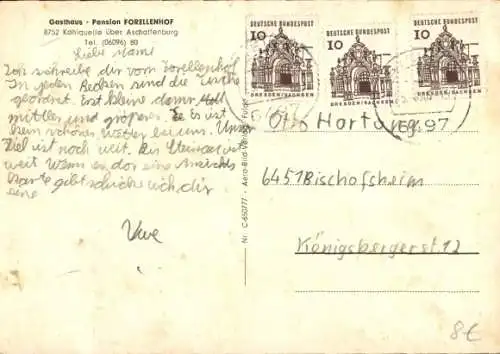 Gasthaus - Pension FORELLENHOF
8752 Kahlquelle über Aschaffenburg
Tel. (06096) 80
Liebe Mami
Ich schreibe dir vom Forellenhof
In jeden Becken sind die Fische
geordnet. Erst kleine dann
mittlere und größere. Es ist
kein schönes Wetter bei uns. Unser
Ziel ist noch weit. Bis Steinau ist
weit. Wenn es dor eine Ansichts
karte gibt schicke ich dir
eine
Uwe
Nr. C-650777 - Aero-Bild-Verlag
DEUTSCHE BUNDESPOST
10
DRESDEN/SACHSEN
DEUTSCHE BUNDESPOST
10
DRESDEN/SACHSEN
DEUTSCHE BUNDESPOST
10
DRESDEN/SACHSEN
Otto Hartung
6451 Bischofsheim
Königsbergerstr. 12
8€